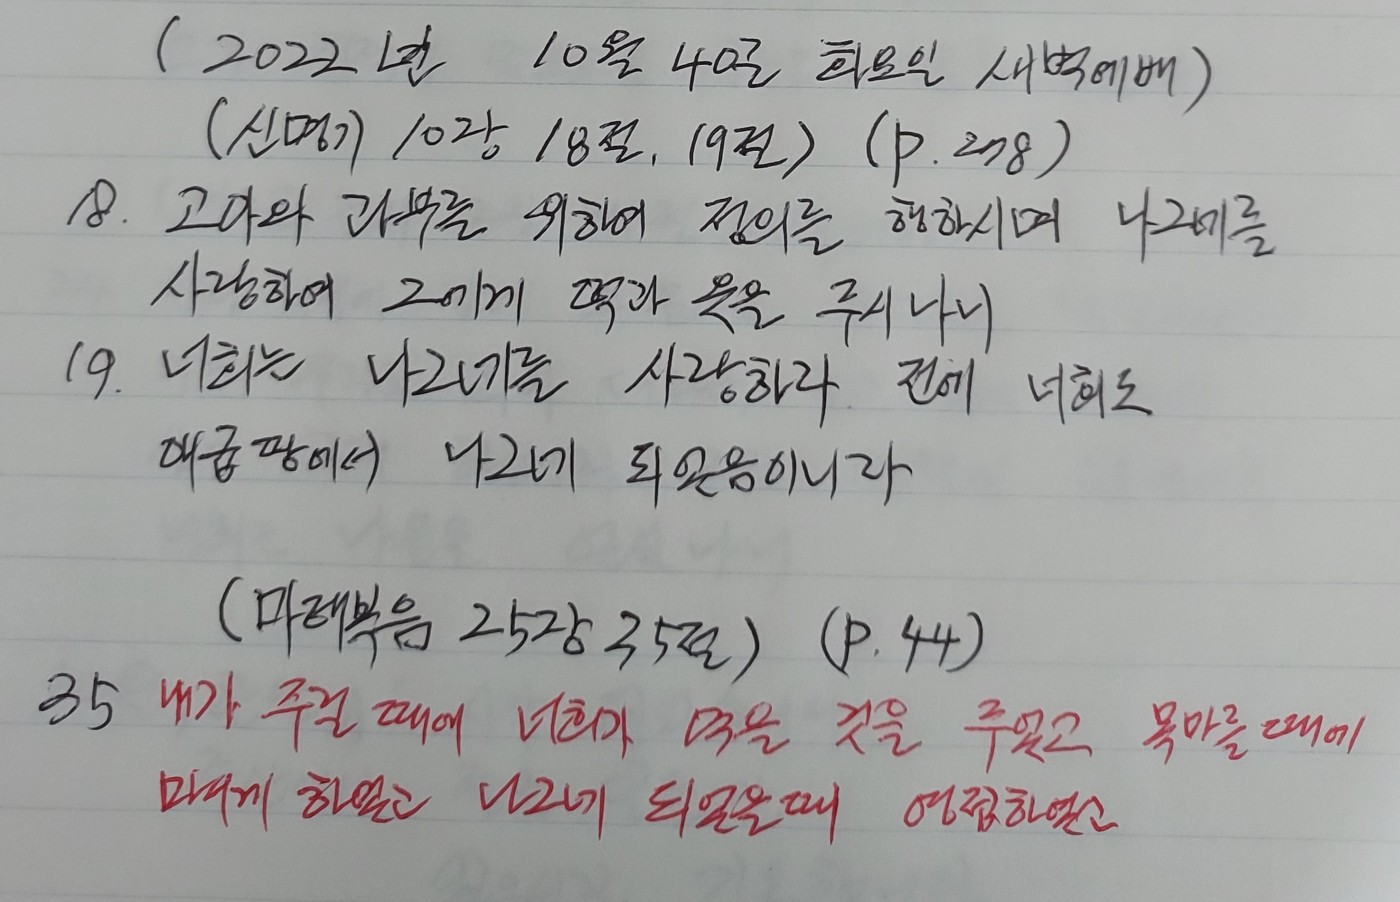 (2022년 10월 4일 화요일 새벽예배)
(신명기 10장 18절, 19절) (P. 278)
18. 고아와 과부를 위하여 정의를 행하시며 나그네를
사랑하여 그에게 떡과 옷을 주시나니
19. 너희는 나그네를 사랑하라 전에 너희도
애굽 땅에서 나그네 되었음이니라
(마태복음 25장 35절) (P. 44)
35 내가 주릴 때에 너희가 먹을 것을 주었고 목마를 때에
마시게 하였고 나그네 되었을 때 영접하였고